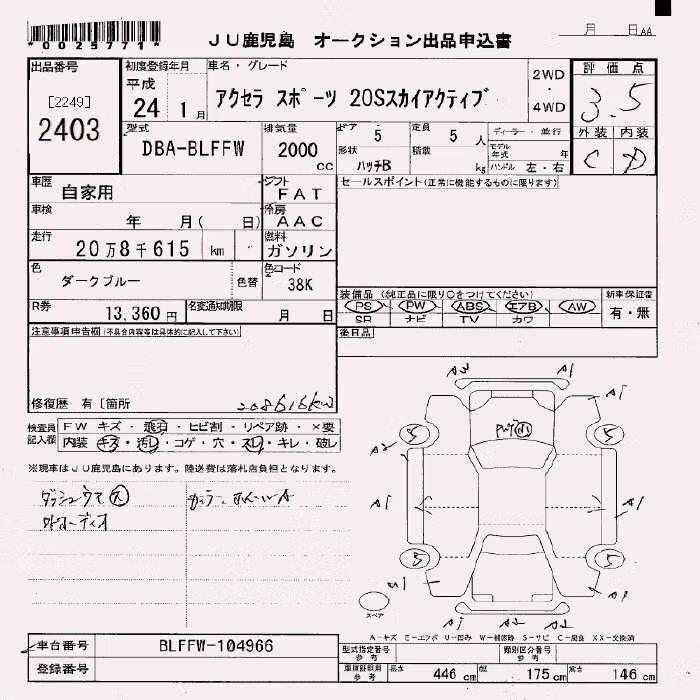 *0025771*
JU鹿児島 オークション出品申込書
月 日 AA
出品番号
[2249]
2403
初度登録年月
平成
24 1月
車名・グレード
アクセラ スポーツ 20Sスカイアクティブ
2WD
・
4WD
評価点
3.5
外装 内装
C D
型式
DBA-BLFFW
排気量
2000 cc
ドア 5
定員 5 人
ディーラー・並行
形状 ハッチB
積載 kg
モデル年式 年
ハンドル 左・右
車歴 自家用
シフト FAT
セールスポイント(正常に機能するものに限ります)
車検 年 月( 日)
冷房 AAC
走行 20万8千615 km
燃料 ガソリン
色 ダークブルー 色替
色コード 38K
R券 13,360円
名変通知期限 月 日
装備品 (純正品に限り○をつけてください)
PS PW ABS エアB AW
SR ナビ TV カワ
新車保証書
有・無
注意事項申告欄(不具合内容等は具体的に記入して下さい)
後日品
修復歴 有[箇所
208616km
検査員記入欄
FW キズ・飛石・ヒビ割・リペア跡・×要
内装 キズ・汚レ・コゲ・穴・スレ・キレ・破レ
※現車はJU鹿児島にあります。陸送費は落札店負担となります。
A2 A1
A1
5 5
A2
A1 A1
5 5
A1 A1
A1 A2 A2
スペア
A-キズ E-エクボ U-凹み W-補修跡 S-サビ C-腐食 XX-交換済
車台番号 BLFFW-104966
登録番号
型式指定番号 参考
類別区分番号 参考
車検証記載 参考
長さ 446 cm
幅 175 cm
高さ 146 cm